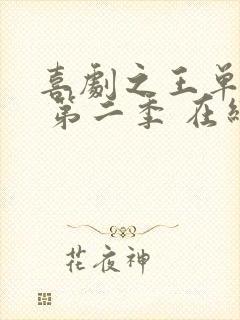 喜劇之王单
第二季 在
花夜神